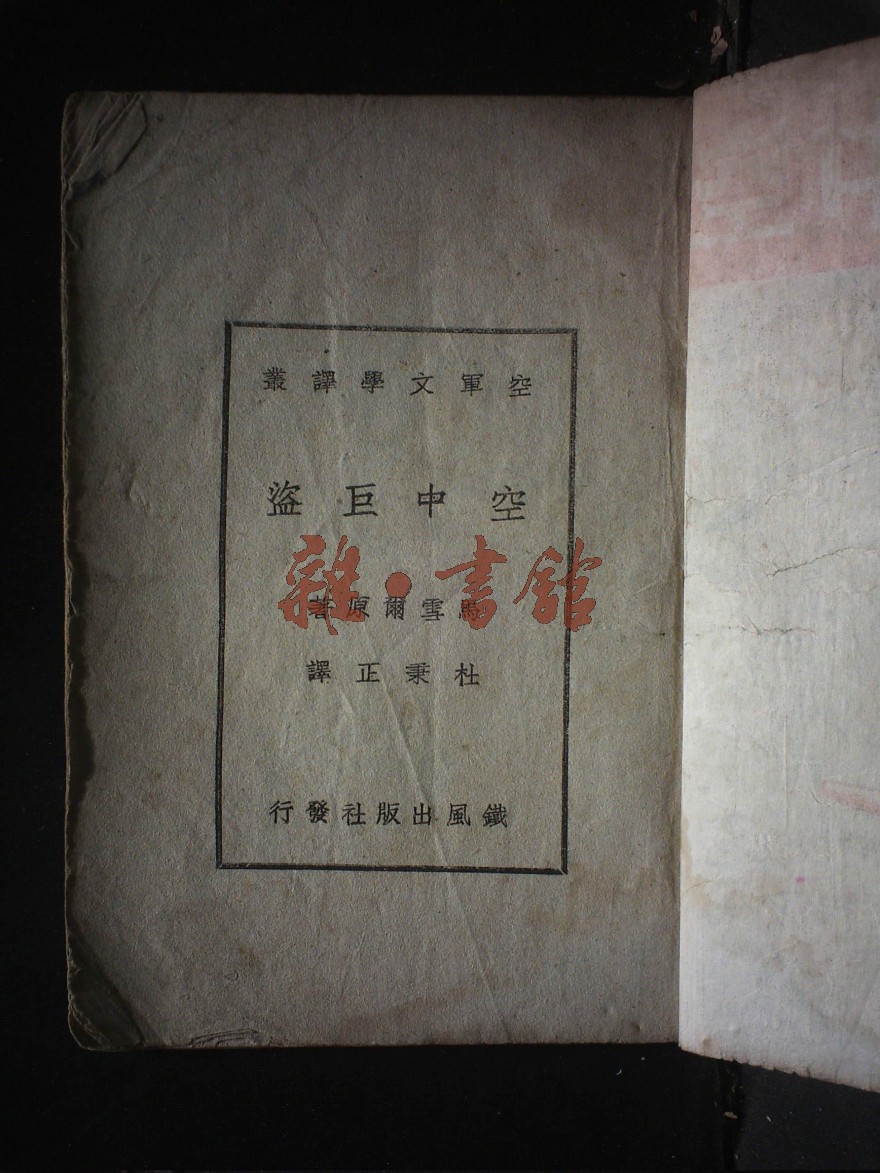 空軍文學譯叢
空中巨盜
馬雪爾原著
雜·書館
杜秉正譯
鐵風出版社發行